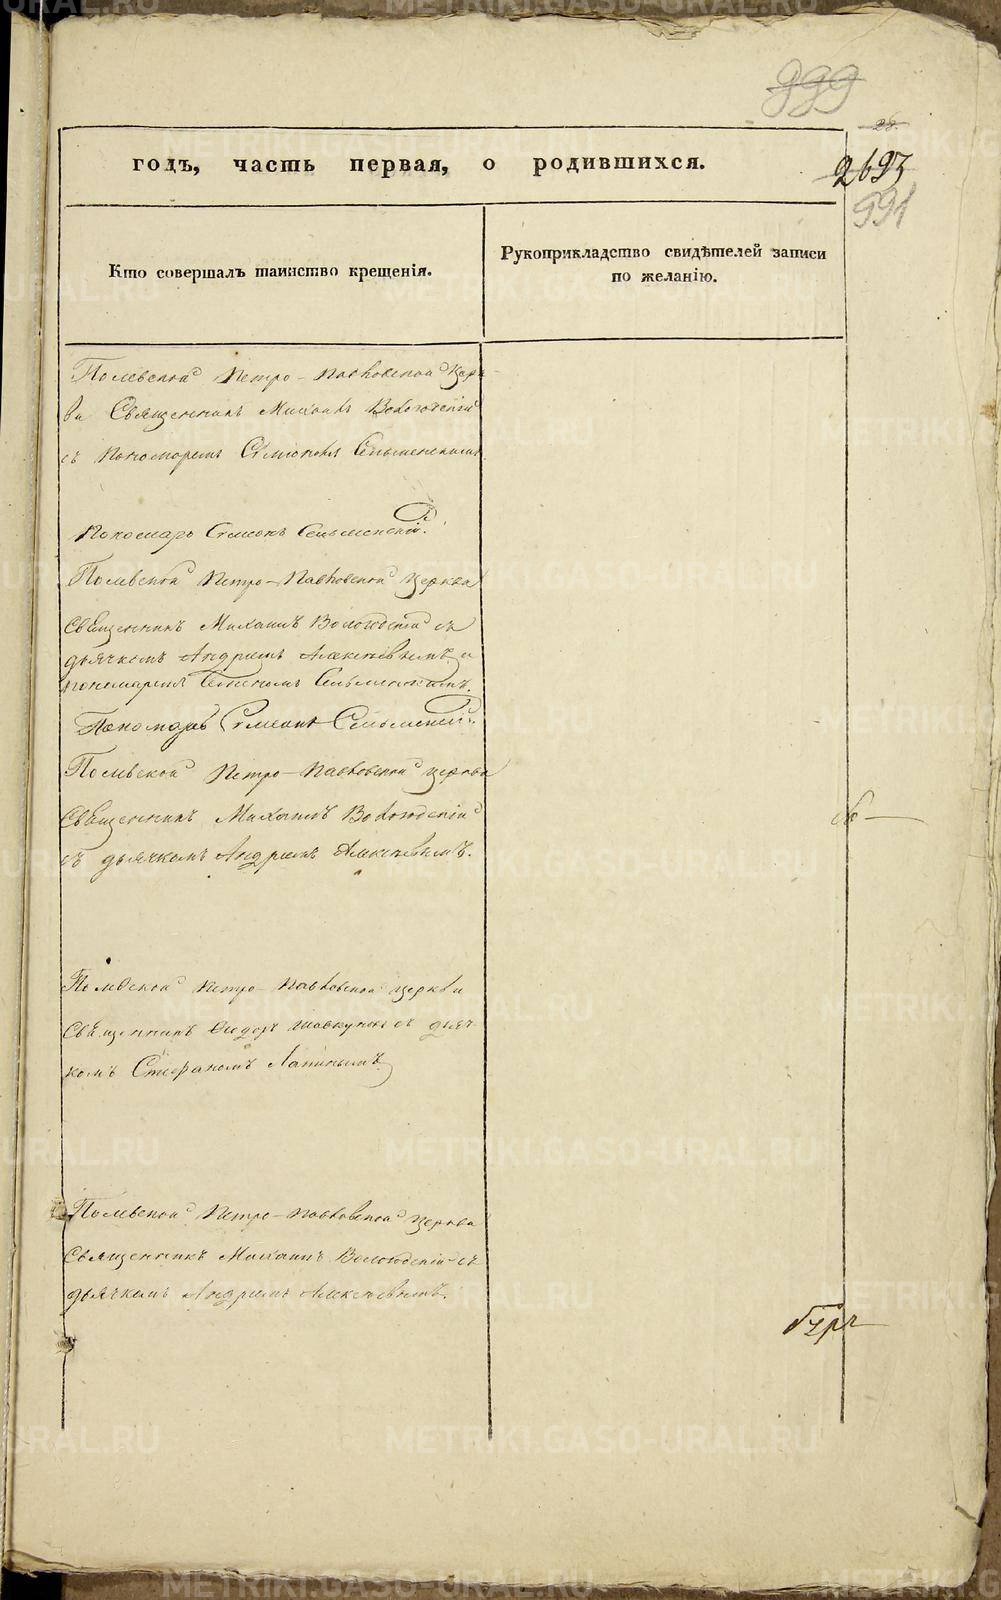 999
28.
годъ, часть первая, о родившихся.
2693
991
Кто совершалъ таинство крещенія.
Рукоприкладство свидѣтелей записи
по желанію.
Полевской Петро-Павловской Церк-
ви Священникъ Михаилъ Вологодскій
съ Пономаремъ Сельменскимъ
Пономарь Симеонъ Сельменскій.
Полевской Петро-Павловской церкви
Священникъ Михаилъ Вологодскій съ
дьячкомъ Андреемъ Алексѣевымъ и
пономаремъ Сельменскимъ.
Пономарь Симеонъ Сельменскій.
Полевской Петро-Павловской церкви
Священникъ Михаилъ Вологодскій
съ дьячкомъ Андреемъ Алексѣевымъ.
Полевской Петро-Павловской церкви
Священникъ Ѳедоръ съ дьяч-
комъ Стефаномъ Лапинымъ
Полевской Петро-Павловской церкви
Священникъ Михаилъ Вологодскій съ
дьячкомъ Андреемъ Алексѣевымъ.
METRIKI.GASO-URAL.RU